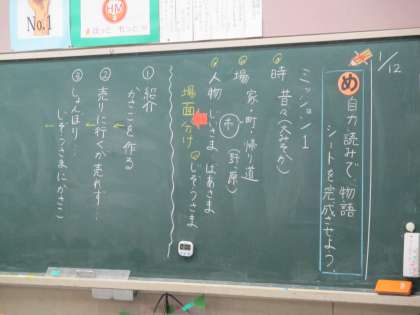 No.1
1/12
め 自力読みで、物語
シートを完成させよう。
ミッション1
時 昔々(大みそか)
場 家・町・帰り道
(野原)
人物 じいさま ばあさま
じぞうさま
場面分け
① 紹介
かさこを作る
② 売りに行くが売れず…
③ しょんぼり…
じぞうさまにかさこ